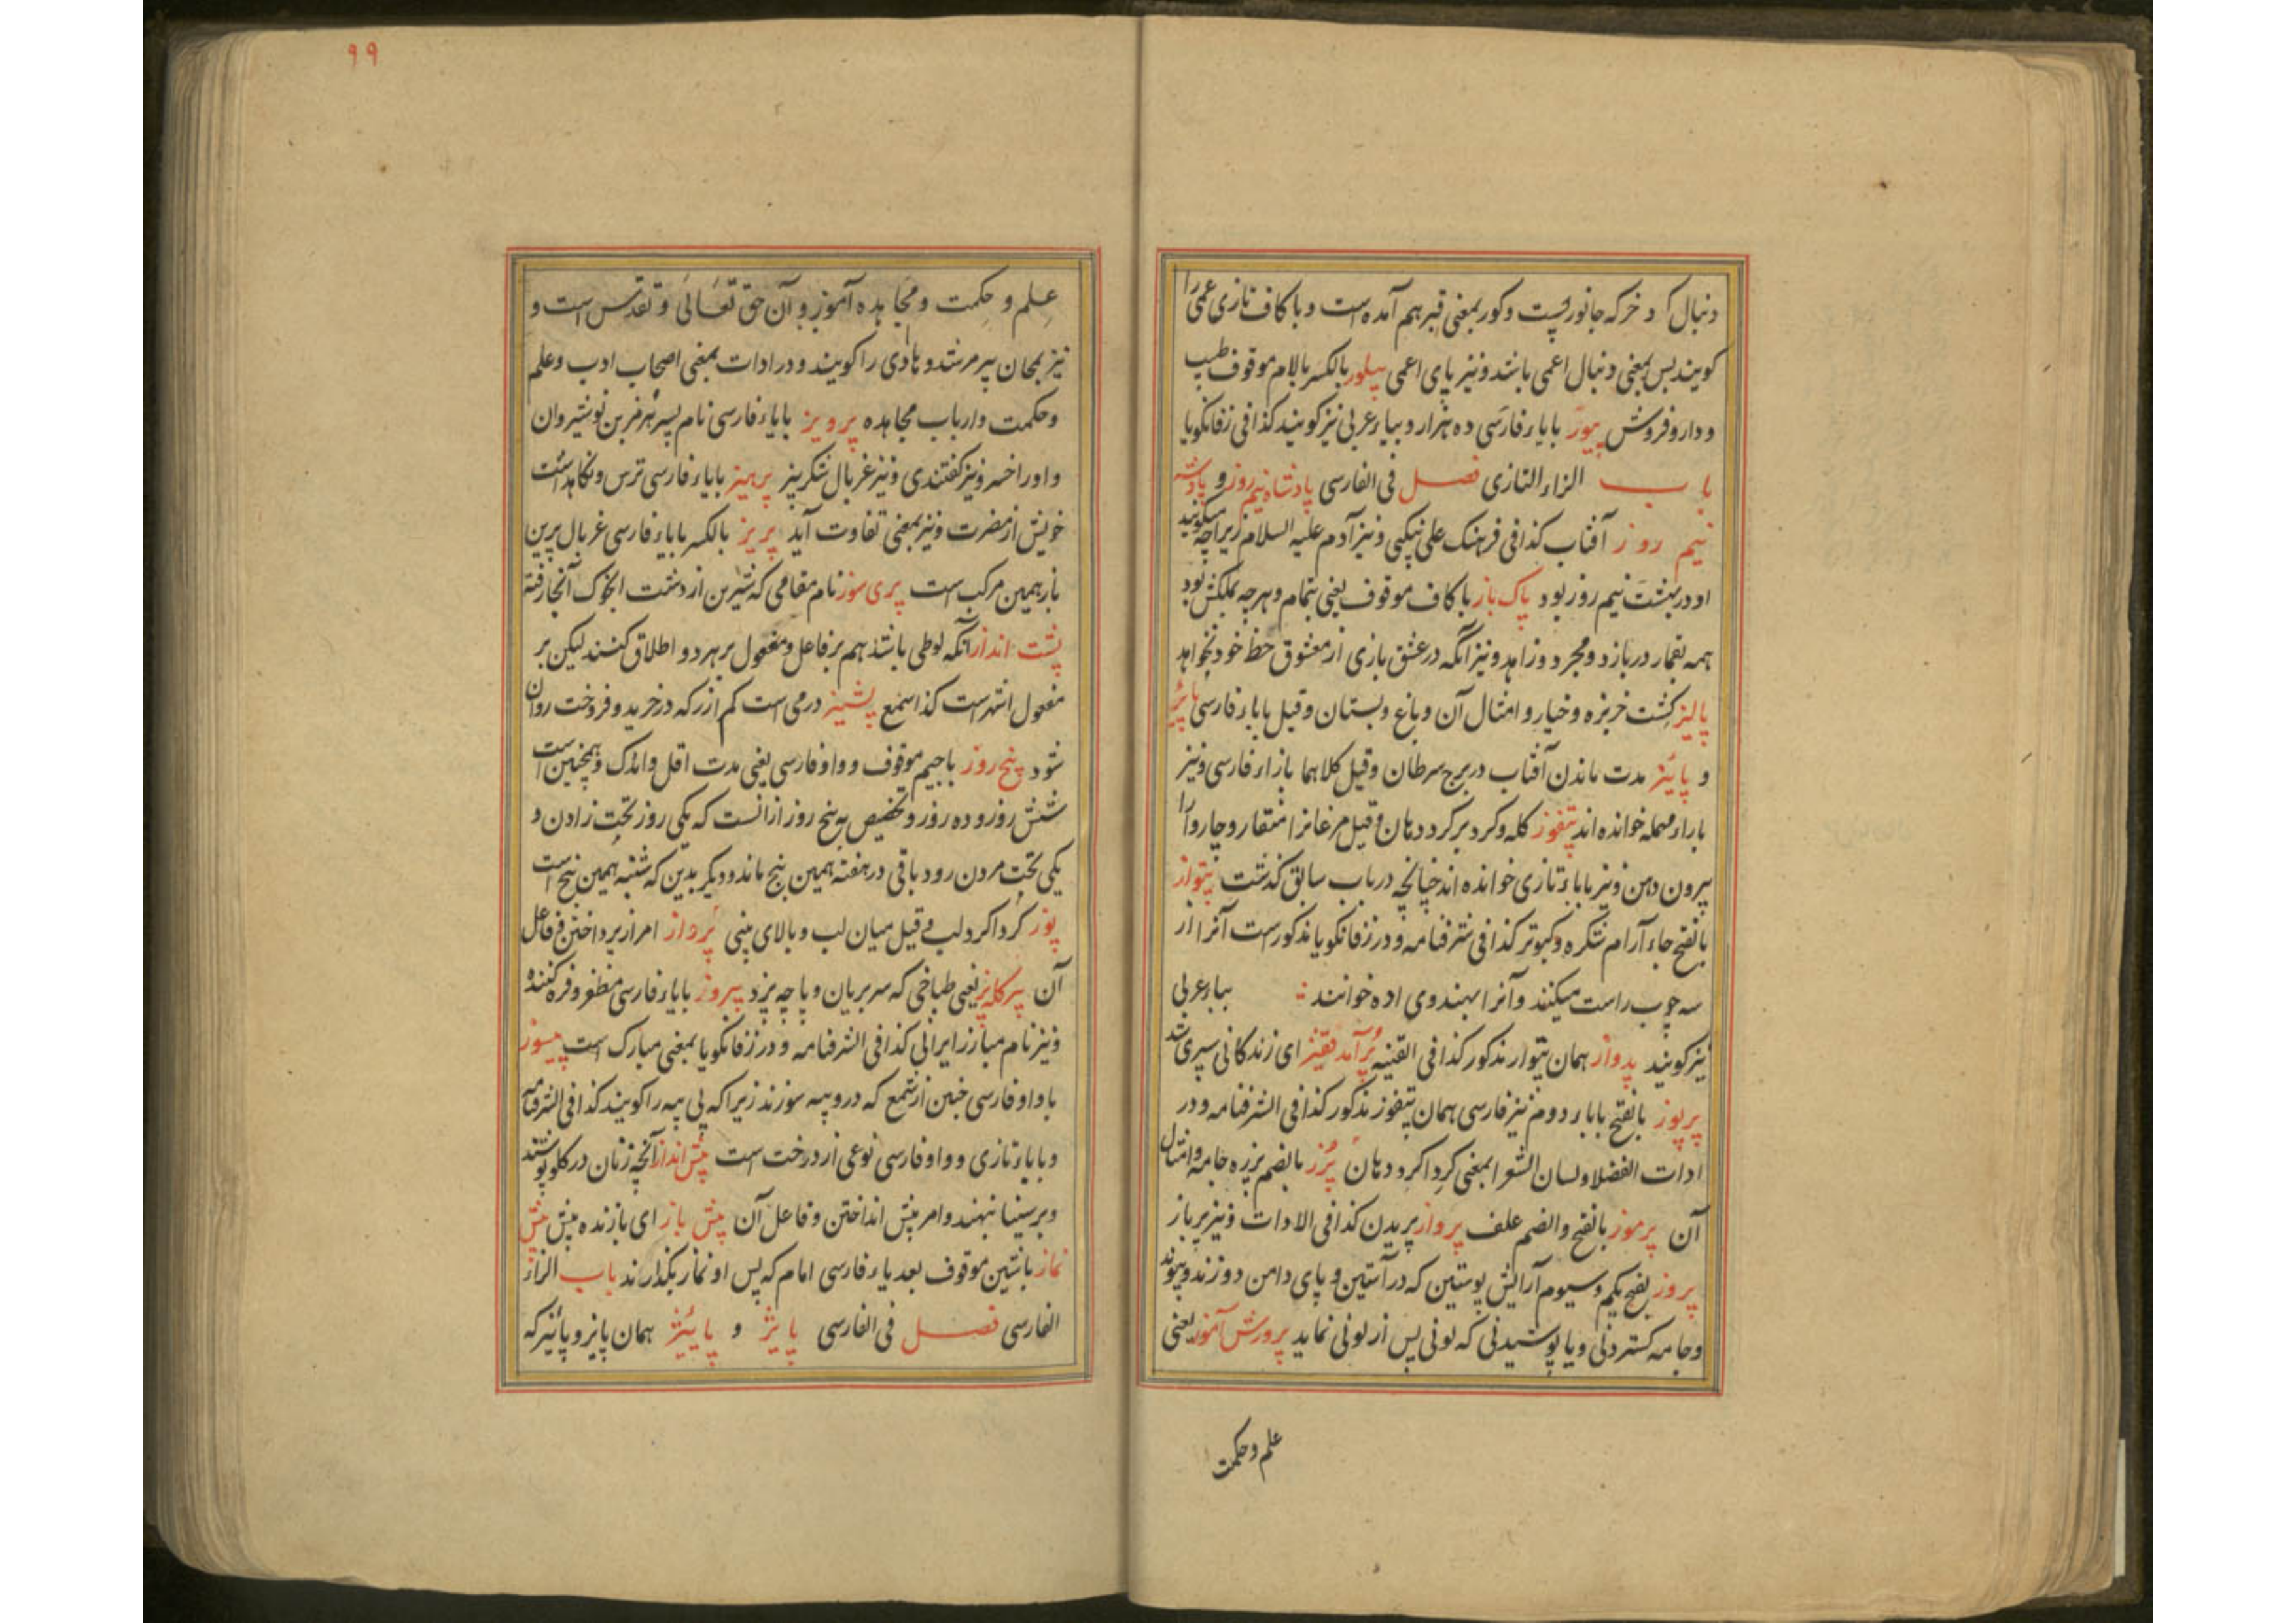 دنبال کرد خر که جانوریست و کور بمعنی قبر هم آمده است و با کاف تازی عمی را
کویند پس بمعنی دنبال اعمی باشد و نیز پای اعمی پیلور بالکسر بالام موقوف طبیب
و دارو فروش بیور بایاء فارسی ده هزار و بیاء عربی نیز کویند کذا فی زفانکویا
باب الزاء التازی فصل فی الفارسی پادشاه نیم روز و پادشه
نیم روز آفتاب کذا فی فرهنک علی نیکبی و نیز آدم علیه السلام زیراچه میکویند
او در بهشت نیم روز بود پاک باز با کاف موقوف یعنی بتمام و هرچه بملکش بود
همه بقمار دربازد و مجرد و زاهد و نیز آنکه در عشق بازی از معشوق حظ خود نخواهد
پالیز کشت خربزه و خیار و امثال آن و باغ و بستان و قیل باباء فارسی پائز
و پائیز مدت ماندن آفتاب در برج سرطان و قیل کلاهما بازاء فارسی و نیز
باراء مهمله خوانده اند بتفوز کله و کرد بر کرد دهان و قیل مرغانرا منقار و چاروا را
بیرون دهن و نیز باباء تازی خوانده اند چنانچه در باب سابق کذشت پتواز
بالفتح جاء آرام شکره و کبوتر کذا فی شرفنامه و در زفانکویا مذکورست آنرا از
سه چوب راست میکنند و آنرا بهندوی اده خوانند بباء عربی
نیز کویند پدواز همان پتواز مذکور کذا فی القنیه برآمد قفیز ای زندکانی سپری شد
پرپوز بالفتح باباء دوم نیز فارسی همان پتفوز مذکور کذا فی الشرفنامه و در
ادات الفضلا و لسان الشعرا بمعنی کرد اکرد دهان پرز بالضم پرزه جامه و امثال
آن پرموز بالفتح و الضم علف پرواز پریدن کذا فی الادات و نیز پر باز
پروز بفتح یکم و سیوم آرایش پوستین که در آستین و پای دامن دوزند و پیوند
و جامه کستردنی و یا پوشیدنی که لونی پس از لونی نماید پرورش آموز یعنی
علم و حکمت
۹۹
علم و حکمت و مجاهده آموز و آن حق تعالی و تقدس است و
نیز بمجاز پیر مرشد و هادی را کویند و در ادات بمعنی اصحاب ادب و علم
و حکمت و ارباب مجاهده پرویز بایاء فارسی نام پسر هرمز بن نوشیروان
و اورا خسرو نیز کفتندی و نیز غربال شکر بیز پرهیز بایاء فارسی ترس و نکاهداشت
خویش از مضرت و نیز بمعنی تفاوت آید پریز بالکسر بایاء فارسی غربال پرین
باز همین مرکب است پری سوز نام مقامی که شیرین از دشت انجرک آنجا رفته
پشت انداز آنکه لوطی باشد هم بر فاعل و مفعول بر هر دو اطلاق کنند لیکن بر
مفعول اشهر است کذا سمع پشیز درمی است کم از زر که در خرید و فروخت روان
شود پنج روز باجیم موقوف و واو فارسی یعنی مدت اقل و اندک و همچنین است
شش روز و ده روز و تخصیص به پنج روز از آنست که یکی روز تحت زادن و
یکی تحت مردن رود باقی در هفته همین پنج ماند و دیکر بدین که شنبه همین پنج است
پوز کرد اکرد لب و قیل میان لب و بالای بینی پرداز امر از پرداختن و فاعل
آن پیر کله پز یعنی طباخی که سر بریان و پاچه پزد پیروز بایاء فارسی مظفر و فره کننده
و نیز نام مبارز ایرانی کذا فی الشرفنامه و در زفانکویا بمعنی مبارک است پیسوز
باواو فارسی جنسی از شمع که درو پیه سوزند زیرا که پی پیه را کویند کذا فی الشرفنامه
و بایاء تازی و واو فارسی نوعی از درخت است پیش انداز آنچه زنان در کلو پوشند
و بر سینها نهند و امر پیش انداختن و فاعل آن پیش باز ای بازنده پیش پیش
نماز باشین موقوف بعد یاء فارسی امام که پس او نماز بکذارند باب الزاء
الفارسی فصل فی الفارسی پایژ و پائیژ همان پایز و پائیز که